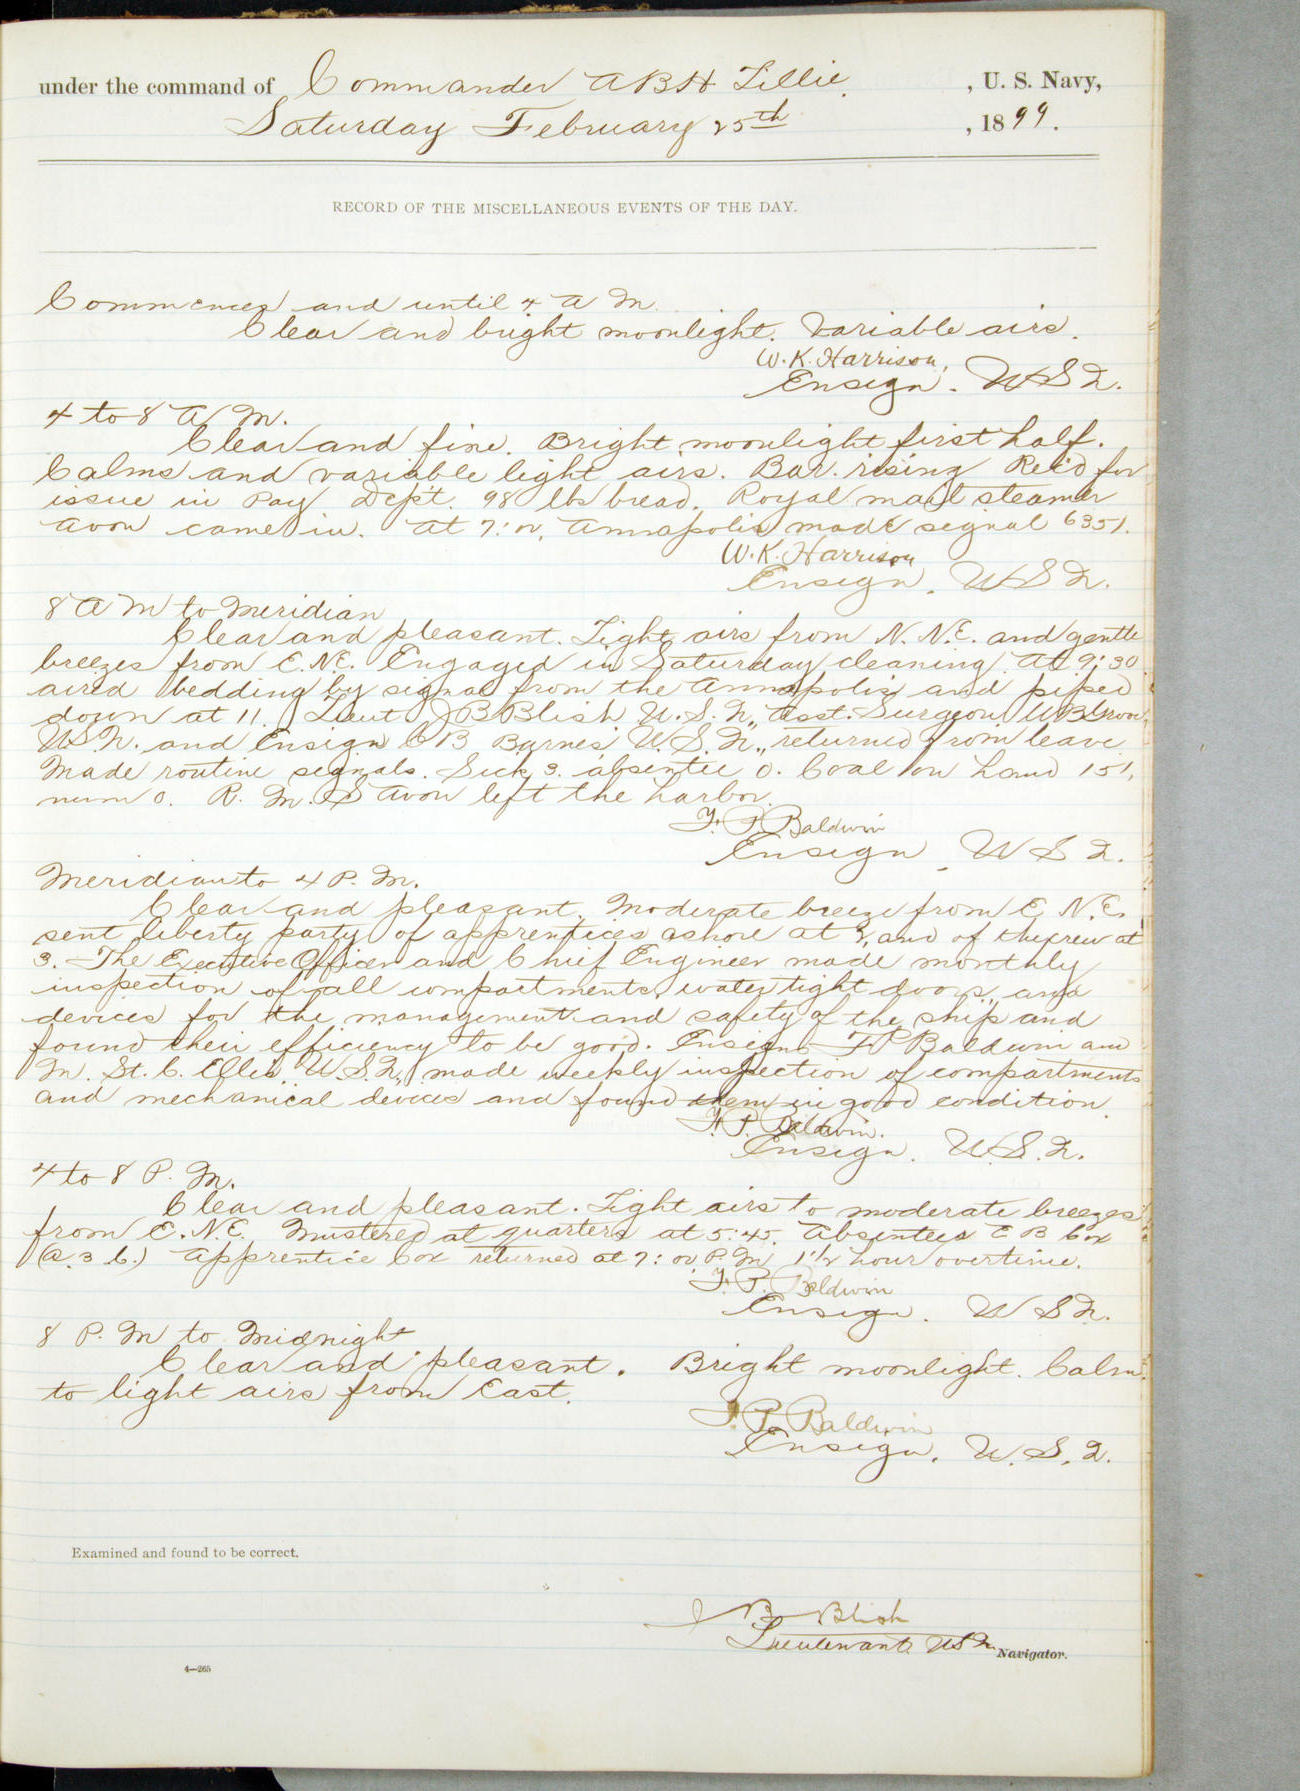 under the command of Commander A B H Lillie. , U. S. Navy,
Saturday February 25th , 1899.
RECORD OF THE MISCELLANEOUS EVENTS OF THE DAY.
Commences and until 4 A M
Clear and bright moonlight. Variable airs.
W. K. Harrison,
Ensign. U S N.
4 to 8 A M.
Clear and fine. Bright moonlight first half.
Calms and variable light airs. Bar. rising Rec'd for
issue in Pay Dep't. 98 lbs bread. Royal mail steamer
Avon came in. At 7:00, Annapolis made signal 6351.
W. K. Harrison
Ensign. U S N.
8 A M to Meridian
Clear and pleasant. Light airs from N. N. E. and gentle
breezes from E. N. E. Engaged in Saturday cleaning. At 9:30
aired bedding by signal from the Annapolis and piped
down at 11. Lieut J B Blish U. S. N., Asst. Surgeon W B Grove
U S N. and Ensign C B Barnes U. S. N., returned from leave
Made routine signals. Sick 3. absentee 0. Coal on hand 151,
num 0. R. M. S Avon left the harbor.
F. P. Baldwin
Ensign U S N.
Meridian to 4 P. M.
Clear and pleasant. Moderate breeze from E. N. E.
sent liberty party of apprentices ashore at 2, and of the crew at
3. The Executive Officer and Chief Engineer made monthly
inspection of all compartments, water tight doors, and
devices for the management and safety of the ship and
found their efficiency to be good. Ensigns F P Baldwin and
M. St. C. Ellis U. S. N., made weekly inspection of compartments
and mechanical devices and found them in good condition.
F. P. Baldwin.
Ensign. U. S. N.
4 to 8 P. M.
Clear and pleasant. Light airs to moderate breezes
from E. N. E. Mustered at quarters at 5:45. Absentees E B Cox
(A. 3 C.) Apprentice Cox returned at 7:00 P. M. 1 1/2 hour overtime.
F. P. Baldwin
Ensign. U S N.
8 P. M to Midnight
Clear and pleasant. Bright moonlight. Calm
to light airs from East.
F. P. Baldwin
Ensign. U. S. N.
Examined and found to be correct.
J B Blish
Lieutenant U S N Navigator.
4—265